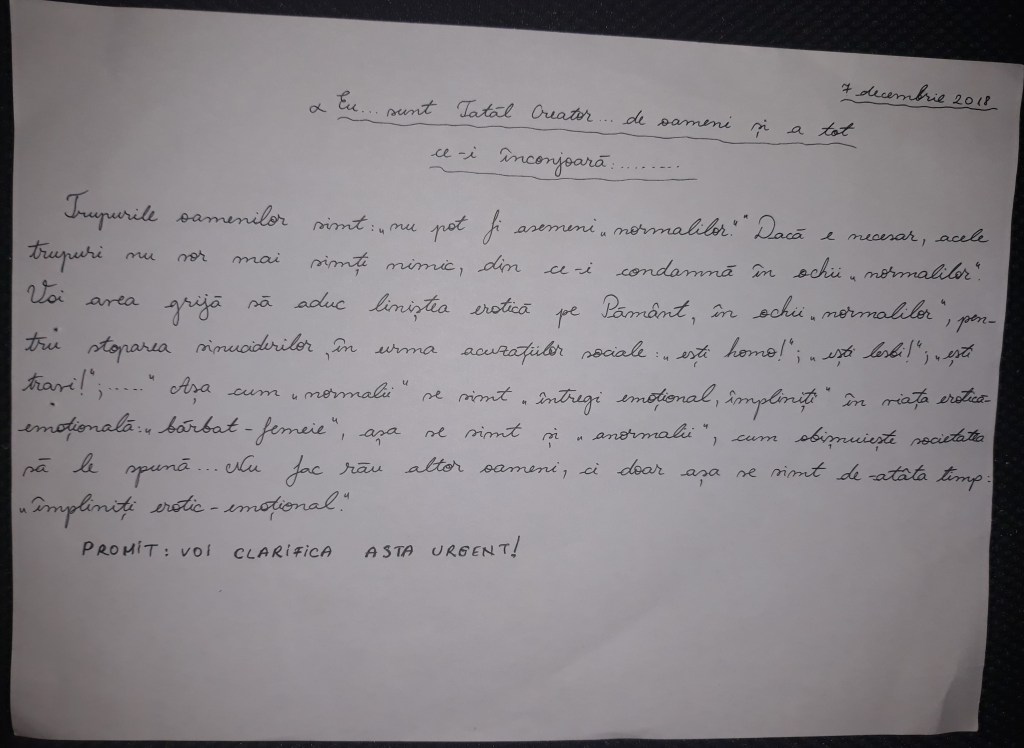 7 decembrie 2018
∝ Eu... sunt Tatăl Creator... de oameni și a tot
ce-i înconjoară:........
Trupurile oamenilor simt: „nu pot fi asemeni „normalilor.” Dacă e necesar, acele
trupuri nu vor mai simți nimic, din ce-i condamnă în ochii „normalilor”.
Voi avea grijă să aduc liniștea erotică pe Pământ, în ochii „normalilor”, pen-
tru stoparea sinuciderilor, în urma acuzațiilor sociale: „ești homo!”; „ești lesbi!”; „ești
travi!”; ......” Așa cum „normalii” se simt „întregi emoțional, împliniți” în viața erotică-
emoțională: „bărbat-femeie”, așa se simt și „anormalii”, cum obișnuiește societatea
să le spună... Nu fac rău altor oameni, ci doar așa se simt de-atâta timp:
„împliniți erotic-emoțional.”
PROMIT: VOI CLARIFICA ASTA URGENT!